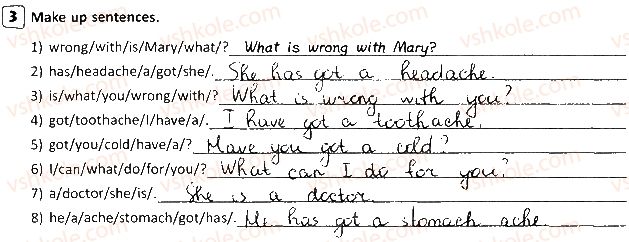 3 Make up sentences.
1) wrong/with/is/Mary/what/? What is wrong with Mary?
2) has/headache/a/got/she/. She has got a headache.
3) is/what/you/wrong/with/? What is wrong with you?
4) got/toothache/I/have/a/. I have got a toothache.
5) got/you/cold/have/a/? Have you got a cold?
6) I/can/what/do/for/you/? What can I do for you?
7) a/doctor/she/is/. She is a doctor.
8) he/a/ache/stomach/got/has/. He has got a stomach ache.